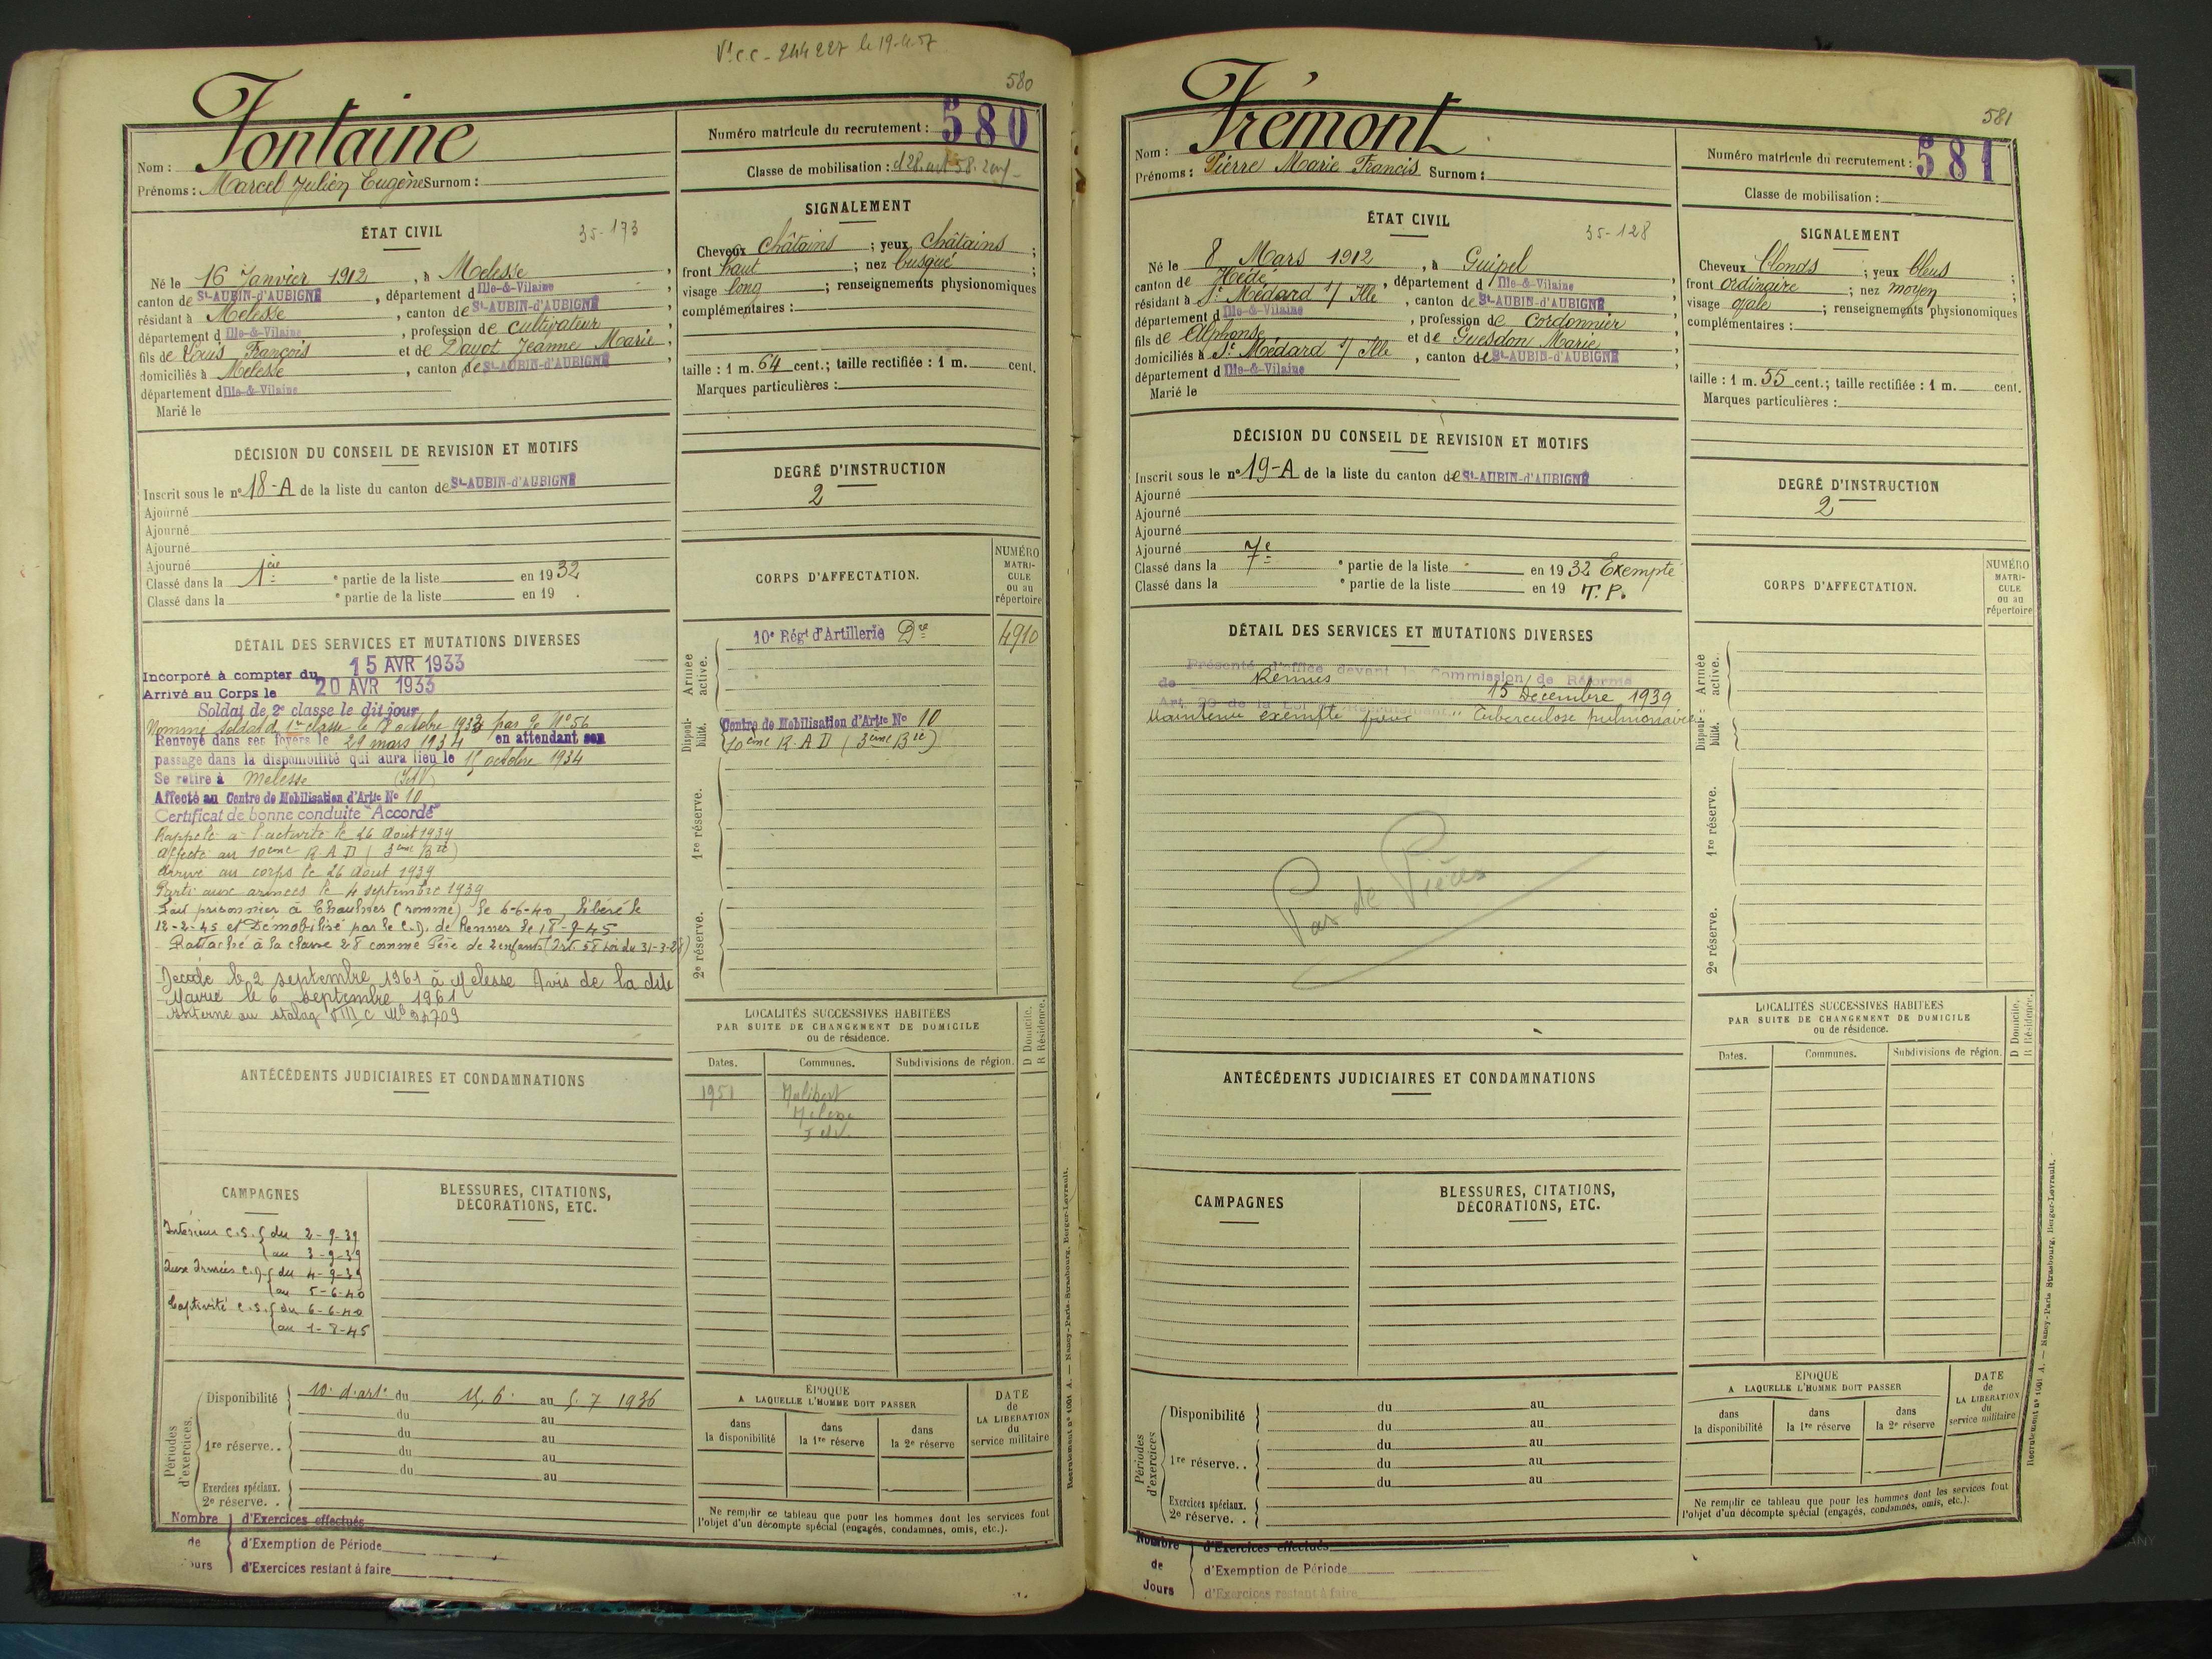 Vt c.c - 244227 le 19-4-57
580
Nom : Fontaine
Prénoms : Marcel Julien Eugène Surnom :
ÉTAT CIVIL
35-173
Né le 16 Janvier 1912, à Melesse,
canton de St-AUBIN-d'AUBIGNÉ, département d Ille-&-Vilaine,
résidant à Melesse, canton de St-AUBIN-d'AUBIGNÉ,
département d Ille-&-Vilaine, profession de cultivateur,
fils de Louis François et de Dayot Jeanne Marie,
domiciliés à Melesse, canton de St-AUBIN-d'AUBIGNÉ,
département d Ille-&-Vilaine
Marié le
DÉCISION DU CONSEIL DE REVISION ET MOTIFS
Inscrit sous le n° 18-A de la liste du canton de St-AUBIN-d'AUBIGNÉ
Ajourné
Ajourné
Ajourné
Ajourné
Classé dans la 1ère e partie de la liste en 1932
Classé dans la e partie de la liste en 19 .
DÉTAIL DES SERVICES ET MUTATIONS DIVERSES
Incorporé à compter du 15 AVR 1933
Arrivé au Corps le 20 AVR 1933
Soldat de 2e classe le dit jour
Nommé soldat de 1re classe le 8 octobre 1933 par le N° 56
Renvoyé dans ses foyers le 29 mars 1934 en attendant son
passage dans la disponibilité qui aura lieu le 15 octobre 1934
Se retire à Melesse (I&V)
Affecté au Centre de Mobilisation d'Artie No 10
Certificat de bonne conduite "Accordé"
Rappelé à l'activité le 26 Août 1939
Affecté au 10eme R A D (3eme Bie)
Arrivé au corps le 26 Aout 1939
Parti aux armées le 4 septembre 1939
Fait prisonnier à Chaulnes (somme) le 6-6-40, libéré le
12-2-45 et Démobilisé par le C.D. de Rennes le 18-9-45
Rattaché à la classe 28 comme Père de 2 enfants (Art. 58 Loi du 31-3-28)
Decede le 2 septembre 1961 à Melesse Avis de la dite
Mairie le 6 septembre 1961
Interné au stalag VIII C
ANTÉCÉDENTS JUDICIAIRES ET CONDAMNATIONS
CAMPAGNES
Intérieur C.S. { du 2-9-39
{ au 3-9-39
Aux Armées C.D. { du 4-9-39
{ au 5-6-40
Captivité C.S. { du 6-6-40
{ au 1-8-45
BLESSURES, CITATIONS,
DÉCORATIONS, ETC.
Périodes d'exercices.
Disponibilité 10e d'arte du 15.6. au 5.7 1936
du au
1re réserve.. du au
du au
du au
Exercices spéciaux.
2e réserve. .
Nombre de Jours
d'Exercices effectués
d'Exemption de Période
d'Exercices restant à faire
Numéro matricule du recrutement : 580
Classe de mobilisation : d 28. art 58. 2 enf
SIGNALEMENT
Cheveux Châtains ; yeux Châtains ;
front haut ; nez busqué ;
visage long ; renseignements physionomiques
complémentaires :
taille : 1 m. 64 cent.; taille rectifiée : 1 m. cent.
Marques particulières :
DEGRÉ D'INSTRUCTION
2
CORPS D'AFFECTATION.
NUMÉRO
MATRI-
CULE
ou au
répertoire
Armée active.
10e Régt d'Artillerie Dre 4910
Disponibilité.
Centre de Mobilisation d'Artie No 10
10ème R.A.D (3ème Bie)
1re réserve.
2e réserve.
LOCALITÉS SUCCESSIVES HABITÉES
PAR SUITE DE CHANGEMENT DE DOMICILE
ou de résidence.
D Domicile.
R Résidence.
Dates. Communes. Subdivisions de région.
1951
Melesse
I et V.
ÉPOQUE
A LAQUELLE L'HOMME DOIT PASSER
dans la disponibilité
dans la 1re réserve
dans la 2e réserve
DATE
de
LA LIBÉRATION
du
service militaire
Ne remplir ce tableau que pour les hommes dont les services font
l'objet d'un décompte spécial (engagés, condamnés, omis, etc.).
Recrutement n° 1001 A. — Nancy-Paris-Strasbourg, Berger-Levrault.
581
Nom : Frémont
Prénoms : Pierre Marie Francis Surnom :
ÉTAT CIVIL
35-128
Né le 8 Mars 1912, à Guipel
canton de Hédé, département d Ille-&-Vilaine,
résidant à St Médard s/ Ille, canton de St-AUBIN-d'AUBIGNÉ,
département d Ille-&-Vilaine, profession de Cordonnier,
fils de Alphonse et de Guesdon Marie,
domiciliés à St Médard s/ Ille, canton de St-AUBIN-d'AUBIGNÉ,
département d Ille-&-Vilaine
Marié le
DÉCISION DU CONSEIL DE REVISION ET MOTIFS
Inscrit sous le n° 19-A de la liste du canton de St-AUBIN-d'AUBIGNÉ
Ajourné
Ajourné
Ajourné
Ajourné
Classé dans la 7e e partie de la liste en 1932 Exempté
Classé dans la e partie de la liste en 19 T.P.
DÉTAIL DES SERVICES ET MUTATIONS DIVERSES
Présenté d'office devant la Commission de Réforme
de Rennes 15 Décembre 1939
Art 20 de la Loi de Recrutement
Maintenu exempté pour "Tuberculose pulmonaire
Pas de Pièces
ANTÉCÉDENTS JUDICIAIRES ET CONDAMNATIONS
CAMPAGNES
BLESSURES, CITATIONS,
DÉCORATIONS, ETC.
Périodes d'exercices
Disponibilité du au
du au
1re réserve.. du au
du au
du au
Exercices spéciaux.
2e réserve. .
Nombre de Jours
d'Exercices effectués
d'Exemption de Période
d'Exercices restant à faire
Numéro matricule du recrutement : 581
Classe de mobilisation :
SIGNALEMENT
Cheveux blonds ; yeux bleus ;
front ordinaire ; nez moyen ;
visage ovale ; renseignements physionomiques
complémentaires :
taille : 1 m. 55 cent.; taille rectifiée : 1 m. cent.
Marques particulières :
DEGRÉ D'INSTRUCTION
2
CORPS D'AFFECTATION.
NUMÉRO
MATRI-
CULE
ou au
répertoire
Armée active.
Disponibilité.
1re réserve.
2e réserve.
LOCALITÉS SUCCESSIVES HABITÉES
PAR SUITE DE CHANGEMENT DE DOMICILE
ou de résidence.
D Domicile.
R Résidence.
Dates. Communes. Subdivisions de région.
ÉPOQUE
A LAQUELLE L'HOMME DOIT PASSER
dans la disponibilité
dans la 1re réserve
dans la 2e réserve
DATE
de
LA LIBÉRATION
du
service militaire
Ne remplir ce tableau que pour les hommes dont les services font
l'objet d'un décompte spécial (engagés, condamnés, omis, etc.).
Recrutement n° 1001 A. — Nancy-Paris-Strasbourg, Berger-Levrault.